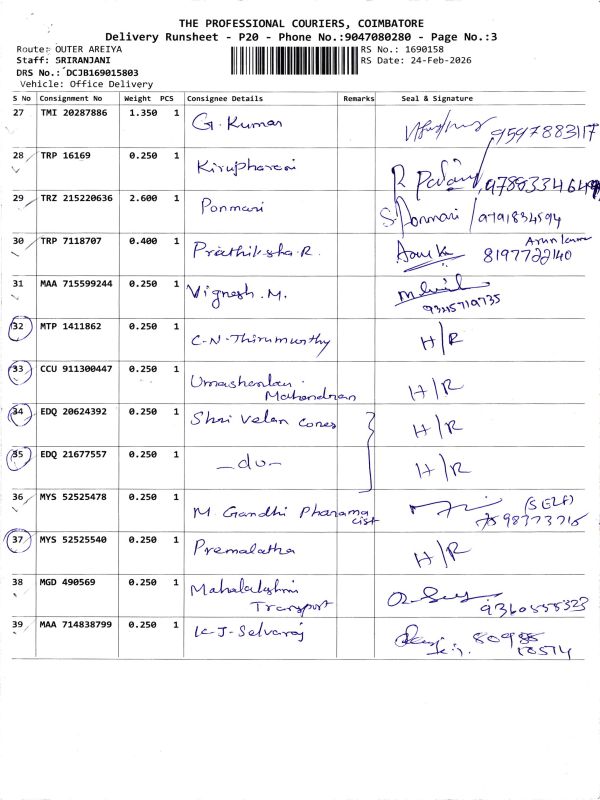 THE PROFESSIONAL COURIERS, COIMBATORE
Delivery Runsheet - P20 - Phone No.:9047080280 - Page No.:3
Route: OUTER AREIYA RS No.: 1690158
Staff: SRIRANJANI RS Date: 24-Feb-2026
DRS No.: DCJB169015803
Vehicle: Office Delivery
S No Consignment No Weight PCS Consignee Details Remarks Seal & Signature
27 TMI 20287886 1.350 1 G. Kumar 9597883117
28 TRP 16169 0.250 1 Kirupharani
29 TRZ 215220636 2.600 1 Ponmari S. Ponmari / 9791834594
30 TRP 7118707 0.400 1 Prathiksha. R. Arun Kumar
8197722140
31 MAA 715599244 0.250 1 Vignesh. M.
32 MTP 1411862 0.250 1 C-N-Thirumurthy H/R
33 CCU 911300447 0.250 1 Umashankar Mahendran H/R
34 EDQ 20624392 0.250 1 Shri Velan Cones H/R
35 EDQ 21677557 0.250 1 -do- H/R
36 MYS 52525478 0.250 1 M Gandhi Pharamacist (SELF)
37 MYS 52525540 0.250 1 Premalatha H/R
38 MGD 490569 0.250 1 Mahalakshmi
Transport 9360555323
39 MAA 714838799 0.250 1 K-J-Selvaraj 80988
10514